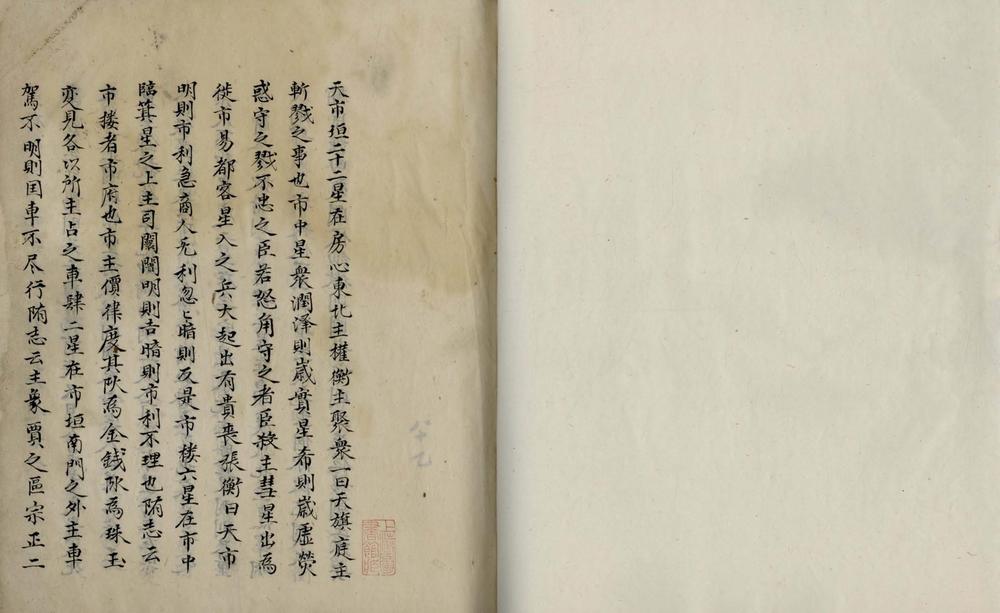 天市垣二十二星在房心東北主權衡主聚衆一曰天旗庭主
斬戮之事也市中星衆潤泽則歳實星希則歳虚熒
惑守之戮不忠之臣若怒角守之者臣殺主彗星出為
徙市易都客星入之兵大起出有貴喪張衡曰天市
明則市利急商人无利忽〻暗則反是市楼六星在市中
臨箕星之上主司闤闠明則吉暗則市利不理也隋志云
市楼者市府也市主價律度其阳為金銭阴為珠玉
变見各以所主占之車肆二星在市垣南門之外主車
駕不明則国車不尽行隋志云主象賈之區宗正二
六十乙